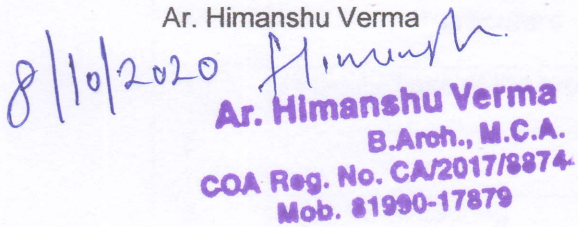 Ar. Himanshu Verma
8/10/2020 Himansh
Ar. Himanshu Verma
B.Arch., M.C.A.
COA Reg. No. CA/2017/8874
Mob. 81990-17879